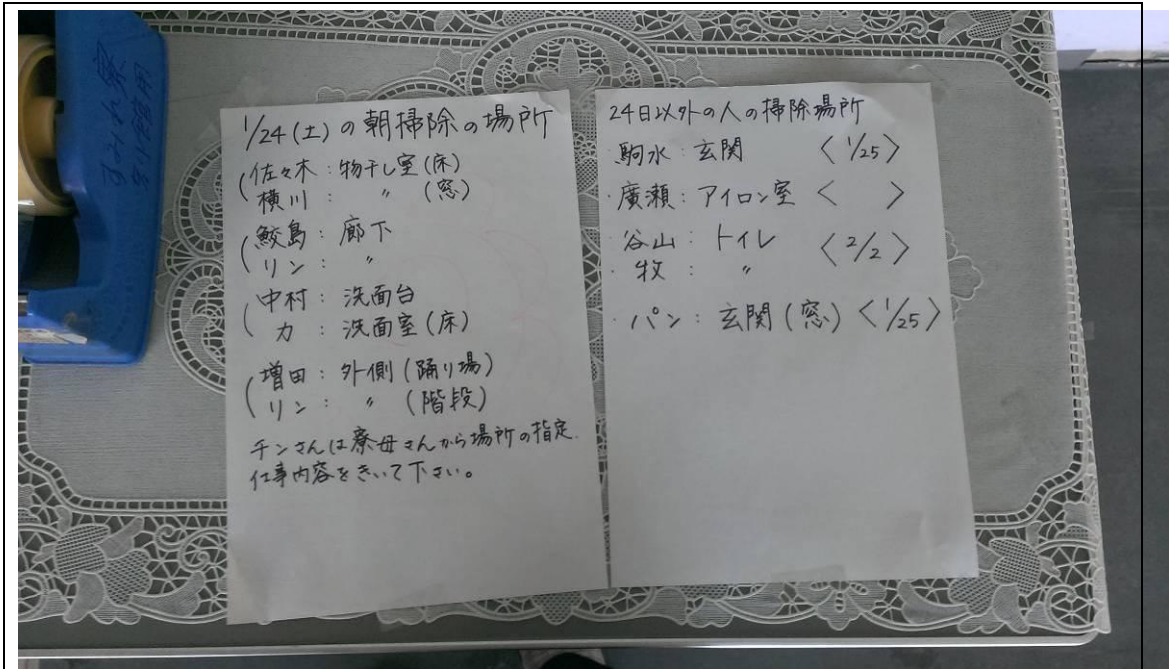 1/24(土)の朝掃除の場所
佐々木:物干し室(床)
横川: 〃 (窓)
鮫島:廊下
リン: 〃
中村:洗面台
カ:洗面室(床)
増田:外側(踊り場)
リン: 〃 (階段)
チンさんは寮母さんから場所の指定.
仕事内容をきいて下さい。
24日以外の人の掃除場所
駒水:玄関 〈1/25〉
・廣瀬:アイロン室 〈 〉
・谷山:トイレ 〈2/2〉
・牧: 〃
・パン:玄関(窓)〈1/25〉